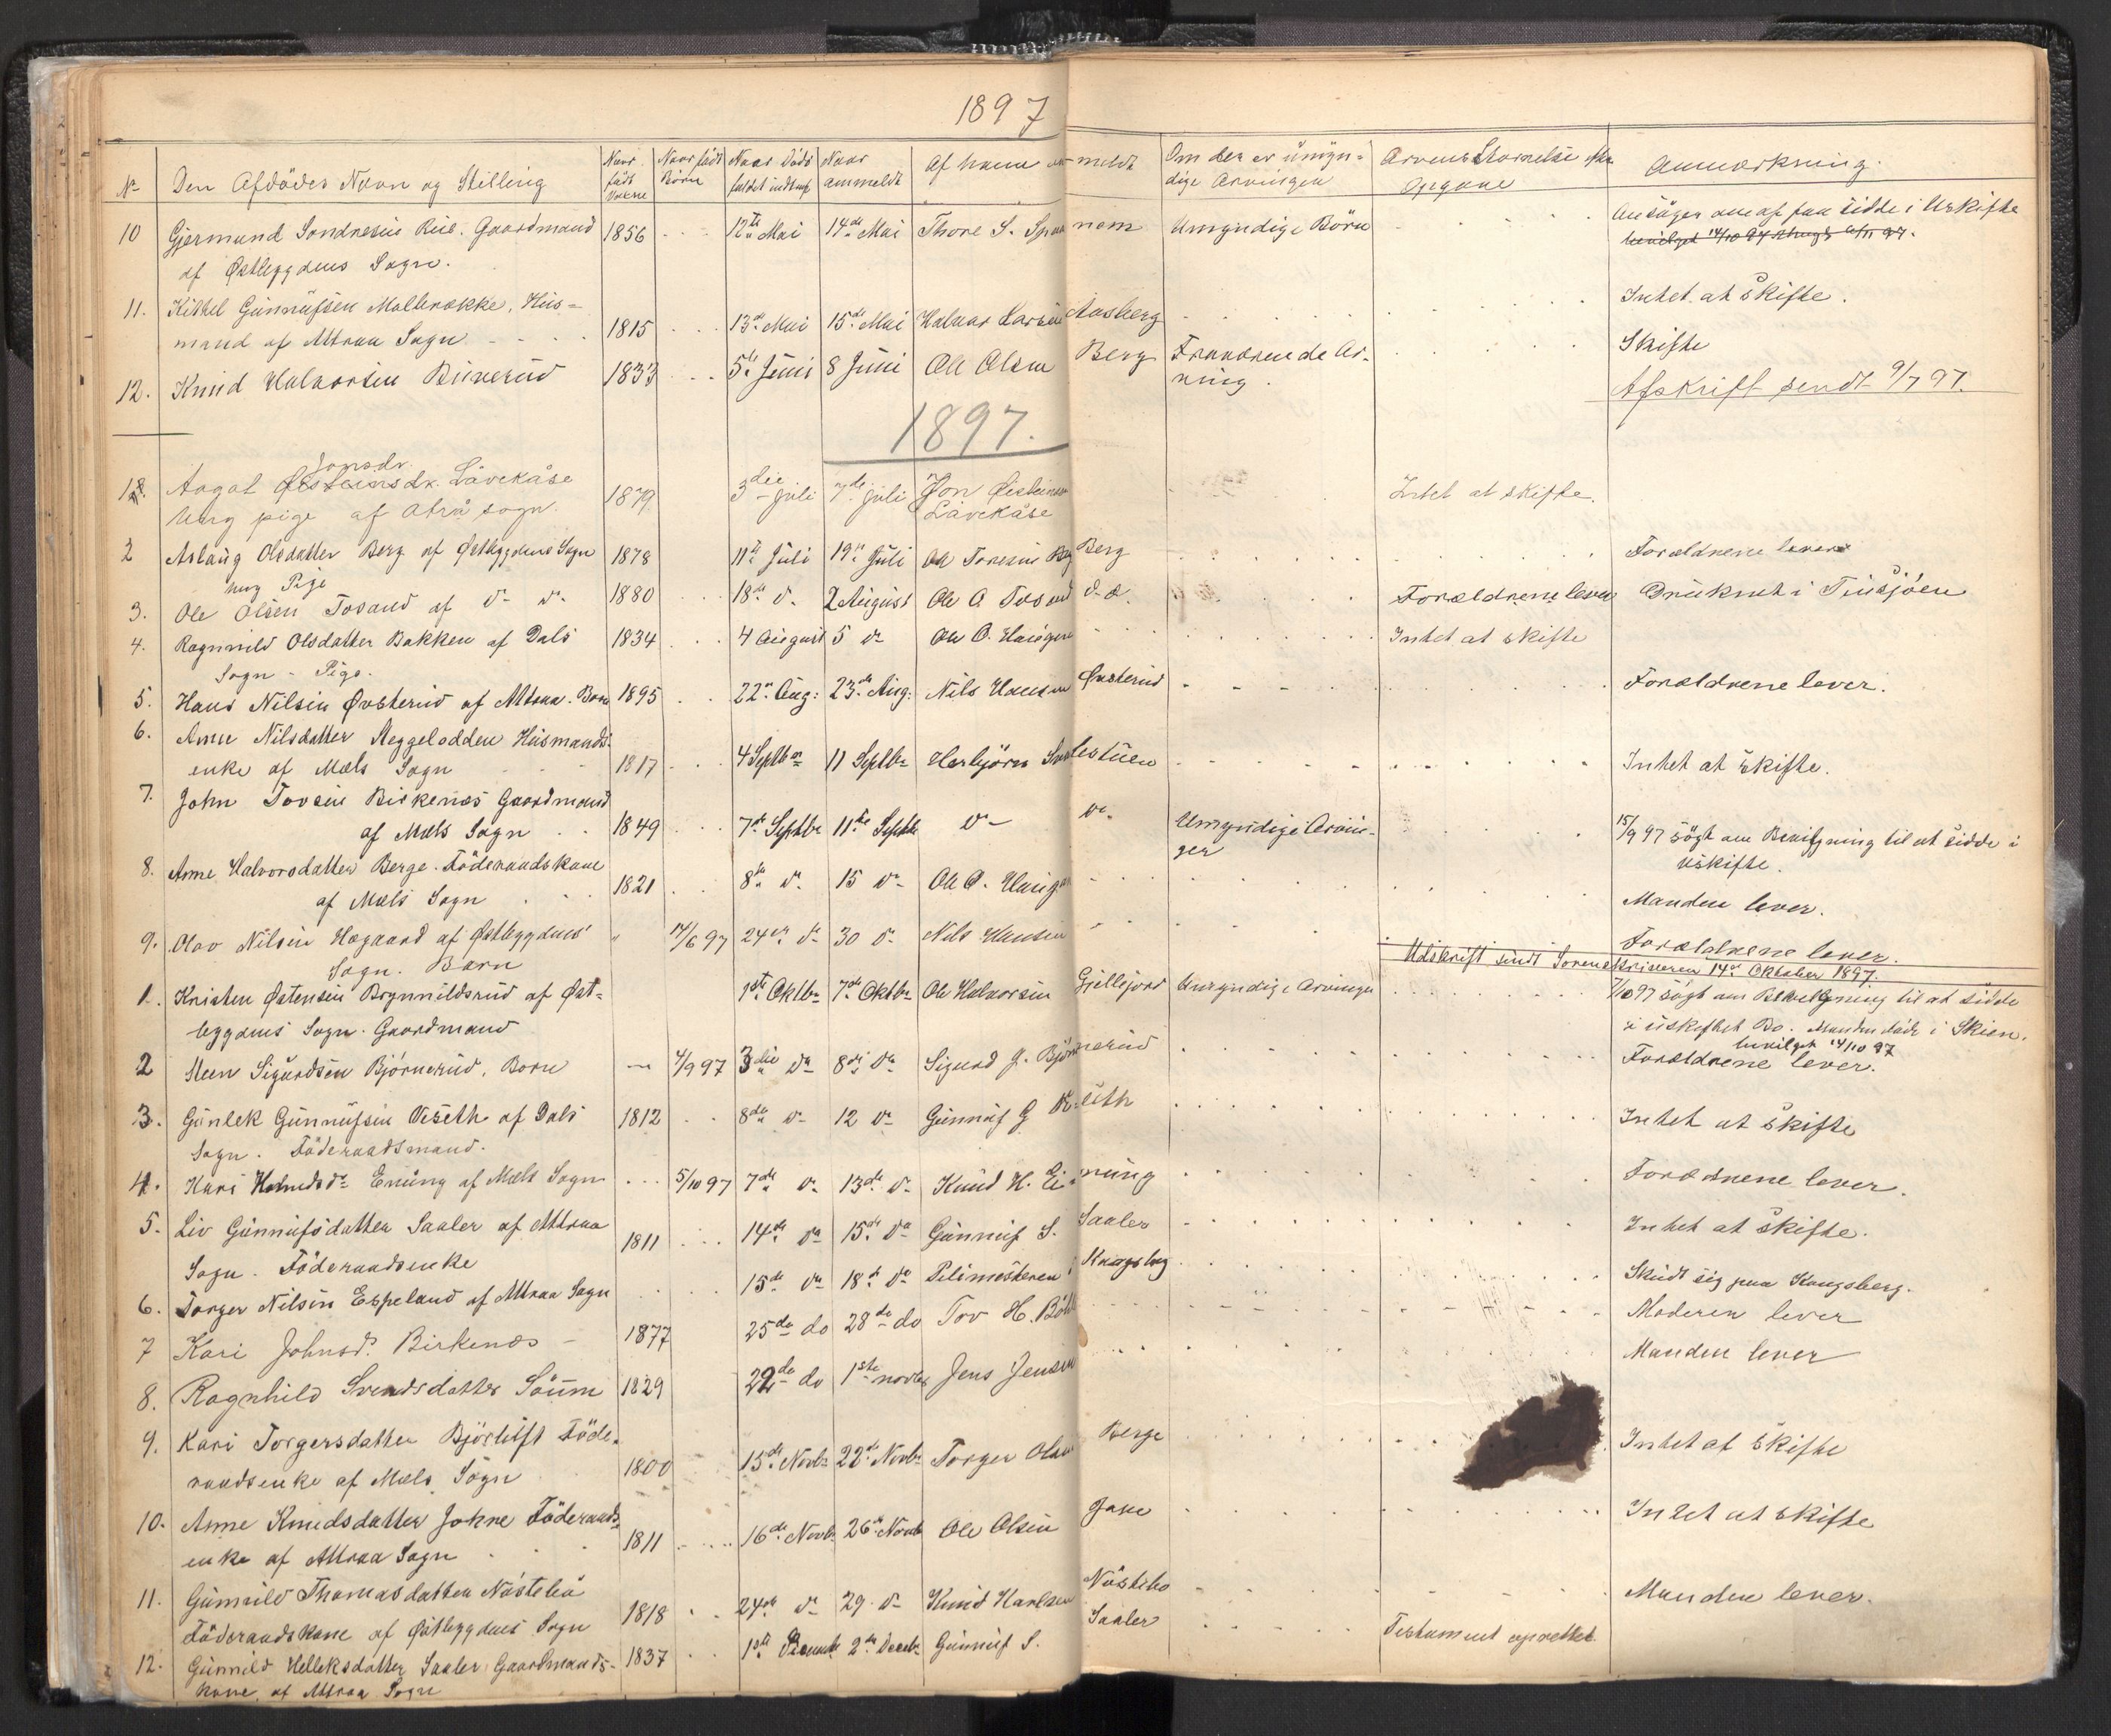 1897
No
Den Afdødes Navn og Stilling
Naar født Voxne
Naar født Børn
Naar Døds faldet indtraf
Naar anmeldt
Af hvem anmeldt
Om der er umyn- dige Arvinger
Anmærkning.
10 Gjermund Sondresen Rue. Gaardmand 1856 12te Mai 14de Mai Thore S. Umyndige Børn Ansøger om at faa sidde i Uskifte
af Østbygdens Sogn. bevilget 14/10 97
11. Kittel Gunnufsen Mølbrække, Hus- Intet at skifte.
mand af Attraa Sogn 1815 13de Mai 15de Mai Halvor Larsen Aasberg
12. Knud Halvorsen Buverud 1833 5te Juni 8 Juni Ole Olsen Berg Fraværende Ar- Skifte
ving. Afskrift sendt 9/7 97.
1897.
Jonsdr.
1. Aagot Østeinsdr. Løvekåse 1879 3die juli 7de juli Jon Øisteinsen Intet at skifte.
Ung pige af Atrå sogn. Løvekåse
2 Aslaug Olsdatter Berg af Østbygdens Sogn 1878 11te Juli 19de Juli Ole Toresen Berg Forældrene lever
ung Pige
3. Ole Olsen Tosaud af do do 1880 18de do 2 August Ole O. Tosaud do Forældrene lever Druknet i Tinsjøen
4. Ragnnild Olsdatter Bakken af Dals 1834 4 August 5 do Ole O. Haugen Intet at skifte
Sogn - Pige.
5. Hans Nilsen Øvsterud af Attraa. Barn 1895 22de Aug: 23de Aug: Nils Hansen Øvsterud Forældrene lever.
6. Anne Nilsdatter Skeggelodden Husmands-
enke af Mæls Sogn 1817 4 Septbr 11 Septbr Herbjørn Intet at skifte.
7. John Tovsen Birkenæs Gaardmand
af Mæls Sogn 1849 7de Septbr 11te Septbr do do Umyndige Arvin- 15/9 97 søgt om Bevilgning til at sidde i
ger uskifte.
8. Anne Halvorsdatter Berge. Föderaadskone
af Mæls Sogn 1821 8de do 15 do Ole O. Haugen Manden lever.
9. Olav Nilsen Hægaard af Østbygdens 14/6 97 24de do 30 do Nils Hansen Forældrene lever.
Sogn. Barn Udskrift sendt Sorenskriveren 14de Oktober 1897.
1. Kristen Østensen Brynnildsrud af Øst- 1ste Oktbr 7de Oktbr Ole Halvorsen Gjellejord Umyndige Arvinger 7/10 97 søgt om Bevilgning til at sidde
bygdens Sogn. Gaardmand i uskiftet Bo. Manden døde i Skien.
bevilget 14/10 97
2 Steen Sigurdsen Bjørnerud, Barn 4/9 97 3die do 8de do Sigurd J. Bjørnerud Forældrene lever.
3. Gunlek Gunnufsen Viseth af Dals 1812 8de do 12 do Gunnuf G Intet at skifte
Sogn. Föderaadsmand.
4. Kari Enung af Mæls Sogn 5/10 97 7de do 13de do Knud H. Einung Forældrene lever.
5. Liv Gunnufsdatter Saaler af Attraa 1811 14de do 15de do Gunnuf S. Saaler Intet at skifte.
Sogn. Föderaadsenke
6. Torger Nilsen Espeland af Attraa Sogn 15de do 18de do Politmesteren i Kongsberg Skudt sig paa Kongsberg.
7 Kari Johnsd. Birkenæs 1877 25de do 28de do Tov H. Moderen lever
8. Ragnhild Svendsdatter Söum 1829 22de do 1ste novbr Jens Jensen Manden lever
9. Kari Torgersdatter Bjørtuft Föde-
raadsenke af Mæls Sogn 1800 15de Novbr 22de Novbr Torger Olsen Berge Intet at skifte
10. Anne Knudsdatter Jokne Föderaads-
enke af Attraa Sogn 1811 16de Novbr 26de Novbr Ole Olsen Intet at skifte
11. Gunnild Thomasdatter Nøstebø
Föderaadskone af Østbygdens Sogn 1818 24de do 29 do Knud Karlsen Nøstebø Manden lever.
12. Gunnild Helleksdatter Saaler Gaardmands- 1837 1ste Decembr 2de Decbr Gunnuf S. Saaler Testament oprettet
kone af Attraa Sogn